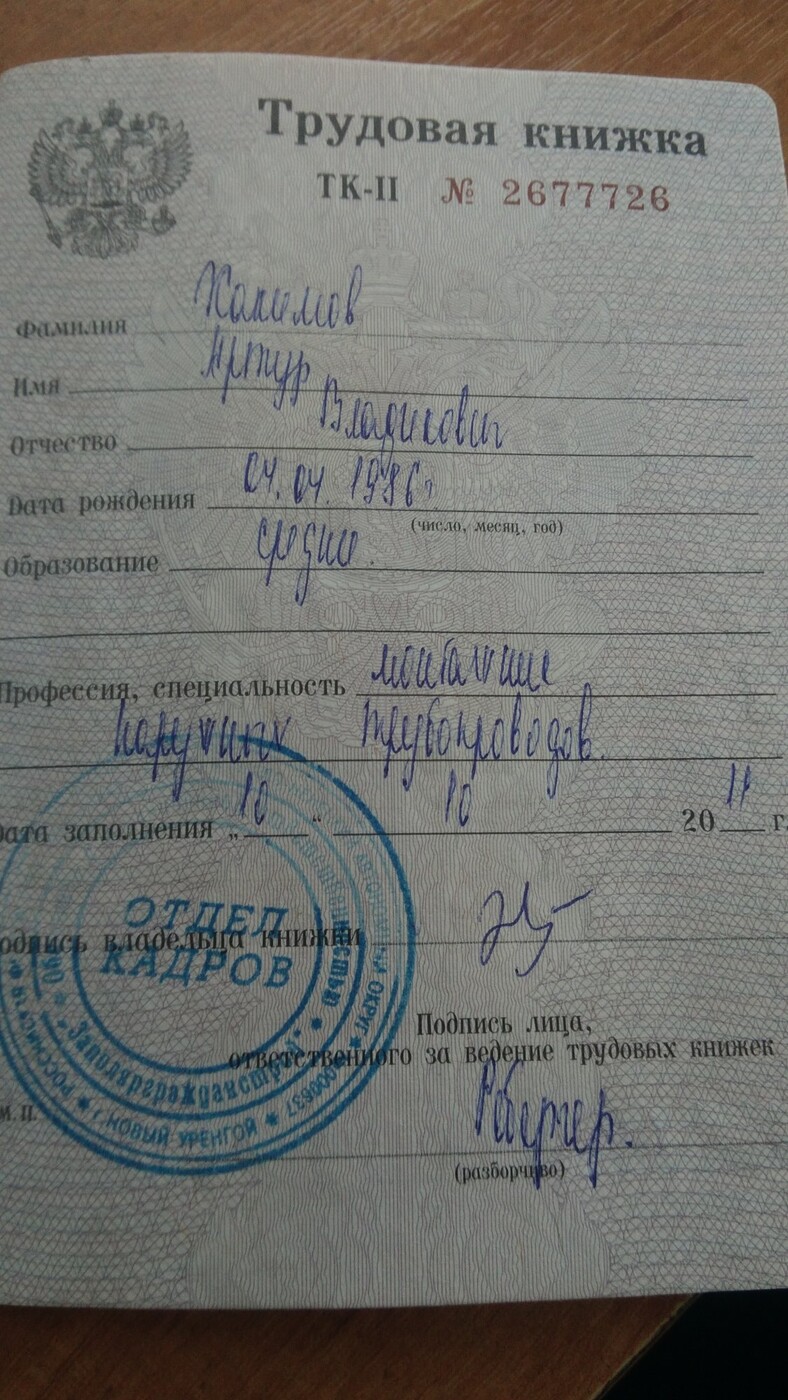 Трудовая книжка
ТК-II № 2677726
Фамилия Хакимов
Имя Артур
Отчество Владикович
Дата рождения 04.04.1986г
(число, месяц, год)
Образование средне.
Профессия, специальность монтажник
наружных трубопроводов.
Дата заполнения „10“ 10 2011 г.
ОТДЕЛ КАДРОВ
подпись владельца книжки
Подпись лица,
ответственного за ведение трудовых книжек
М.П.
"Заполяргражданстрой"
г. НОВЫЙ УРЕНГОЙ
(разборчиво)